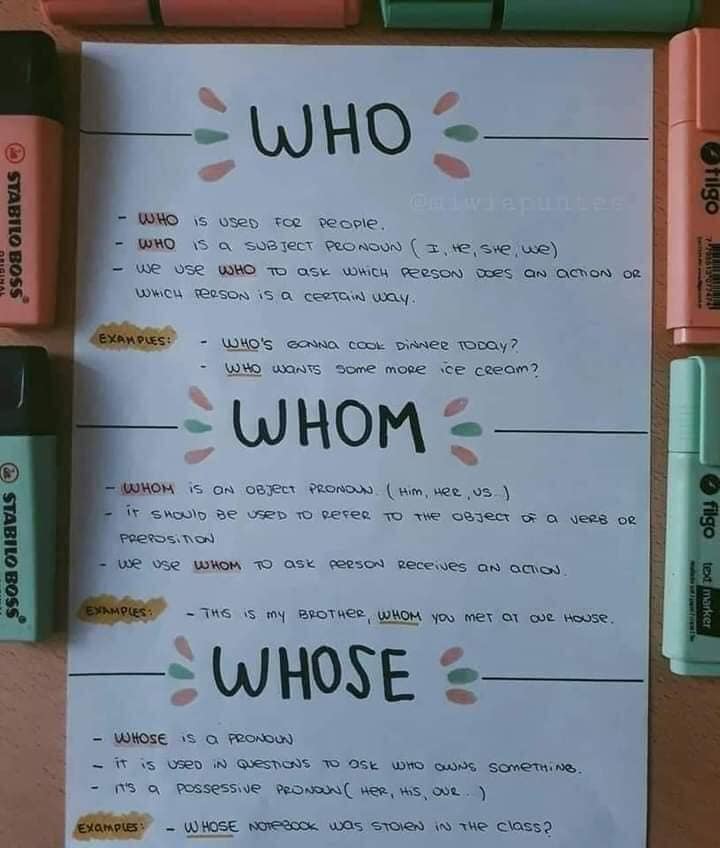 WHO
@miwiapuntes
- WHO IS USED FOR PEOPLE.
- WHO IS A SUBJECT PRONOUN ( I, HE, SHE, WE)
- WE USE WHO TO ASK WHICH PERSON DOES AN ACTION OR
WHICH PERSON IS A CERTAIN WAY.
EXAMPLES: - WHO'S GONNA COOK DINNER TODAY?
- WHO WANTS SOME MORE ICE CREAM?
WHOM
- WHOM IS AN OBJECT PRONOUN. ( HIM, HER, US..)
- IT SHOULD BE USED TO REFER TO THE OBJECT OF A VERB OR
PREPOSITION
- WE USE WHOM TO ASK PERSON RECEIVES AN ACTION.
EXAMPLES: - THIS IS MY BROTHER, WHOM YOU MET AT OUR HOUSE.
WHOSE
- WHOSE IS A PRONOUN
- IT IS USED IN QUESTIONS TO ASK WHO OWNS SOMETHING.
- IT'S A POSSESSIVE PRONOUN( HER, HIS, OUR...)
EXAMPLES: - WHOSE NOTEBOOK WAS STOLEN IN THE CLASS?
STABILO BOSS
ORIGINAL
STABILO BOSS
filgo
filgo text marker